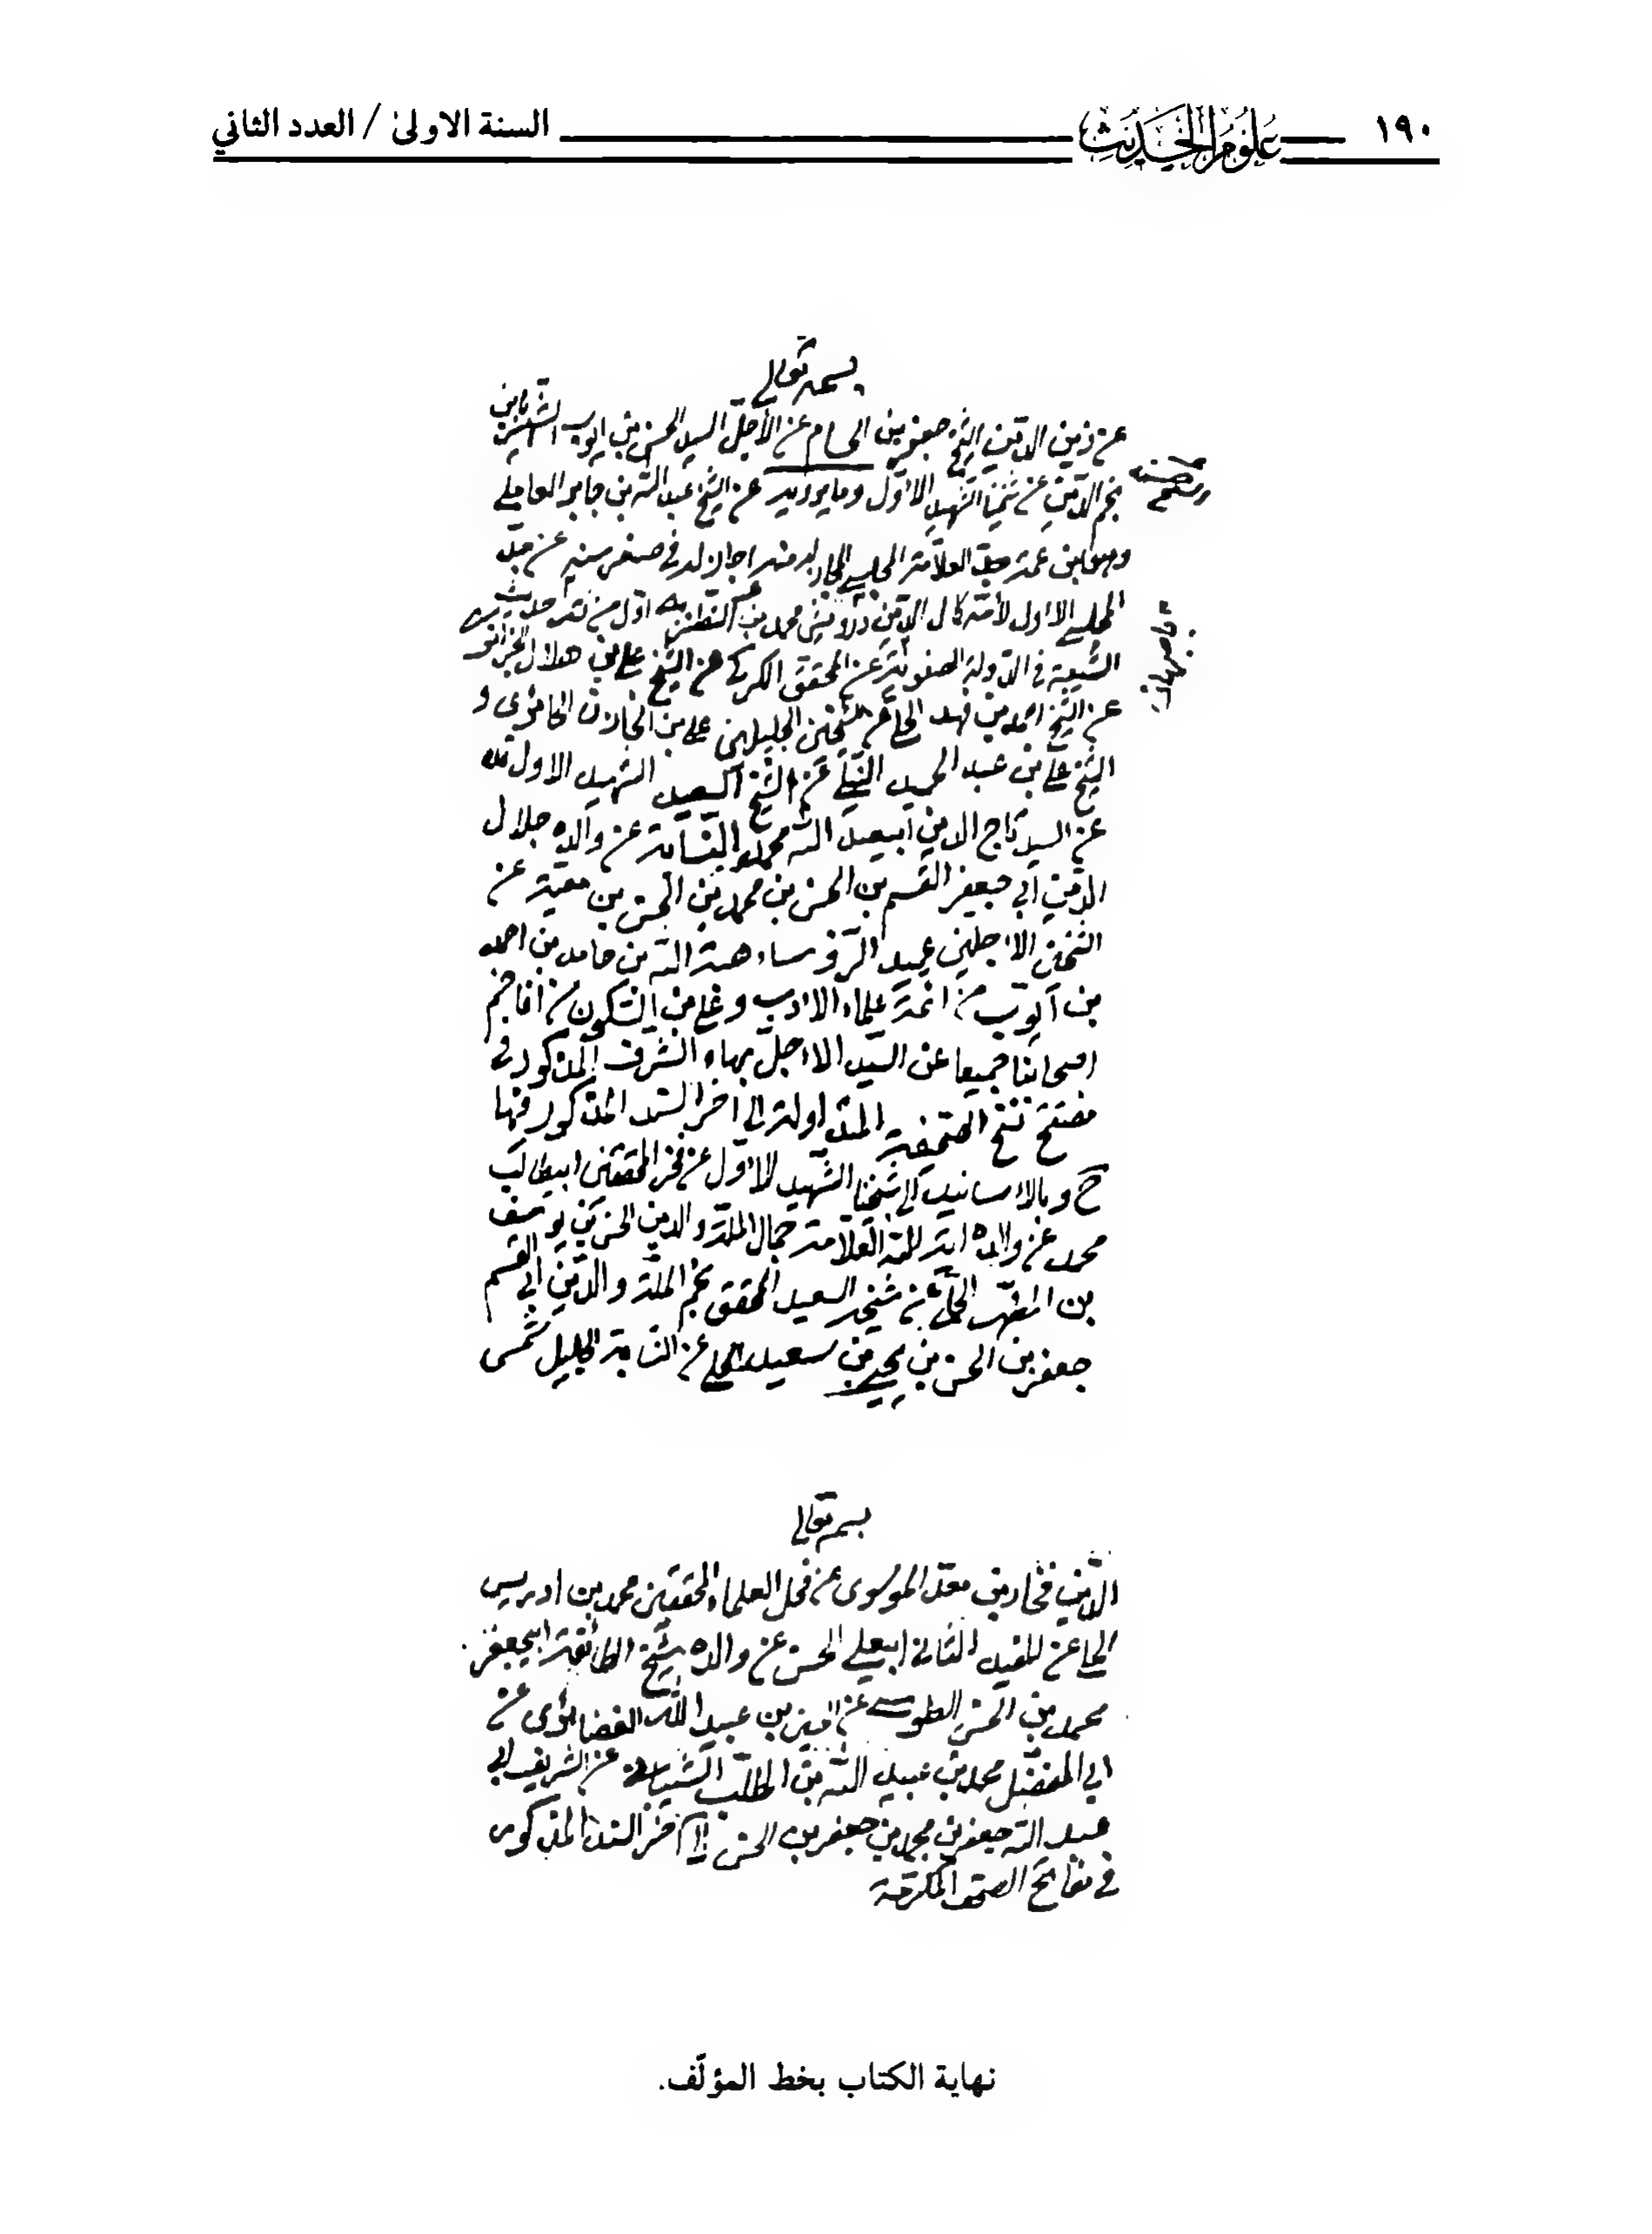 ١٩٠ علوم الحديث السنة الاولىٰ / العدد الثاني
بسمه تعالى
عن زين الدين الشيخ جعفر بن الحسام عن الأجلّ السيد الحسن بن ايوب الشهير بابن
نجم الدين عن شيخنا الشهيد الاوّل وما يرويه عن الشيخ عبد الله بن جابر العاملي
وهو ابن عمة العلّامة المجلسي اجازه له في صغر سنه عن جد
المجلسي الاول لأمه كمال الدين درويش محمد بن النطنزي اول من نشر حديث
الشيعة في الدولة الصفوية عن المحقق الكركي عن الشيخ علي بن هلال الجزائري
عن الشيخ احمد بن فهد الحلي عن الشيخين الجليلين علي بن الخازن الحائري و
الشيخ علي بن عبد الحميد النيلي عن الشيخ السعيد الشهيد الاول
عن السيد تاج الدين ابيعبد الله محمد النسابة عن والده جلال
الدين أبي جعفر القسم بن الحسن بن محمد بن الحسن بن معية عن
الشيخين الاجلين عميد الرؤساء هبة الله بن حامد بن احمد
بن أيوب من ائمة علماء الادب وعلي بن السكون من افاخم
اصحابنا جميعا عن السيد الاجلّ بهاء الشرف المذكور في
مفتتح نسخ الصحيفة المتداولة الى آخر السند المذكور فيها
ح وبالاسانيد الى شيخنا الشهيد الاوّل عن فخر المحققين ابيطالب
محمد عن والده اية الله العلّامة جمال الملة والدين الحسن بن يوسف
بن المطهر الحلّي عن شيخه السعيد المحقق نجم الملّة والدين ابي القسم
جعفر بن الحسن بن يحيى بن سعيد الحلي عن النسابة الجليل شمس
بسمه تعالى
الدين فخار بن معد الموسوي عن فحل العلماء المحققين محمد بن ادريس
الحلي عن المفيد الثاني ابيعلي الحسن عن والده شيخ الطائفة ابيجعفر
محمد بن الحسن الطوسي عن الحسين بن عبيد الله الغضائري عن
ابي المفضل محمد بن عبيد الله بن المطلب الشيباني عن الشريف ابي
عبد الله جعفر بن محمد بن جعفر بن الحسن الى آخر السند المذكور
في مفاتح الصحف المكرمة
نهاية الكتاب بخط المؤلّف.